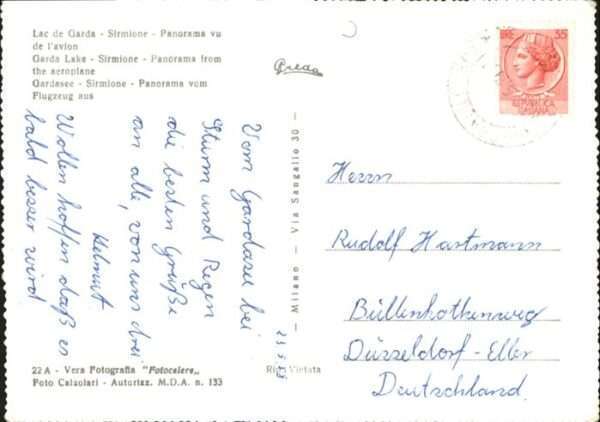 Lac de Garda - Sirmione - Panorama vu
de l'avion
Garda Lake - Sirmione - Panorama from
the aeroplane
Gardasee - Sirmione - Panorama vom
Flugzeug aus
Vom Gardasee bei
Sturm und Regen
die besten Grüße
an alle, von uns drei
Helmut
Wollen hoffen daß es
bald besser wird
22 A - Vera Fotografia "Fotocelere„
Foto Calzolari - Autorizz. M.D.A. n. 133
Milano - Via Sangallo 30 -
LIRE 35
REPUBBLICA
ITALIANA
Herrn
Rudolf Hartmann
Büllenkothenweg
Düsseldorf-Eller
Deutschland